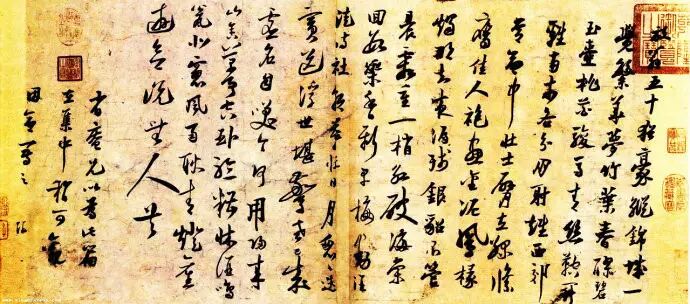 放翁五十猶豪縱錦城一
覺繁華夢竹葉春醪碧
玉壺桃花駿馬青絲鞚鬥
雞南市各分朋射雉西郊
常命中壯士臂立綠絛
鷹佳人袍畫金泥鳳椽
燭那知夜漏殘銀貂不管
晨霜重一梢紅破海棠
回數蕊香新早梅動酒徒
詩社朝暮忙日月匆匆迭
賓送浮世堪驚老已成
虛名自笑今何用歸來
山舍萬事空臥聽糟床酒鳴
甕北窗風雨耿青燈舊
遊欲說無人共
省庵兄以為此篇
在集中稍可觀
因命寫之 游